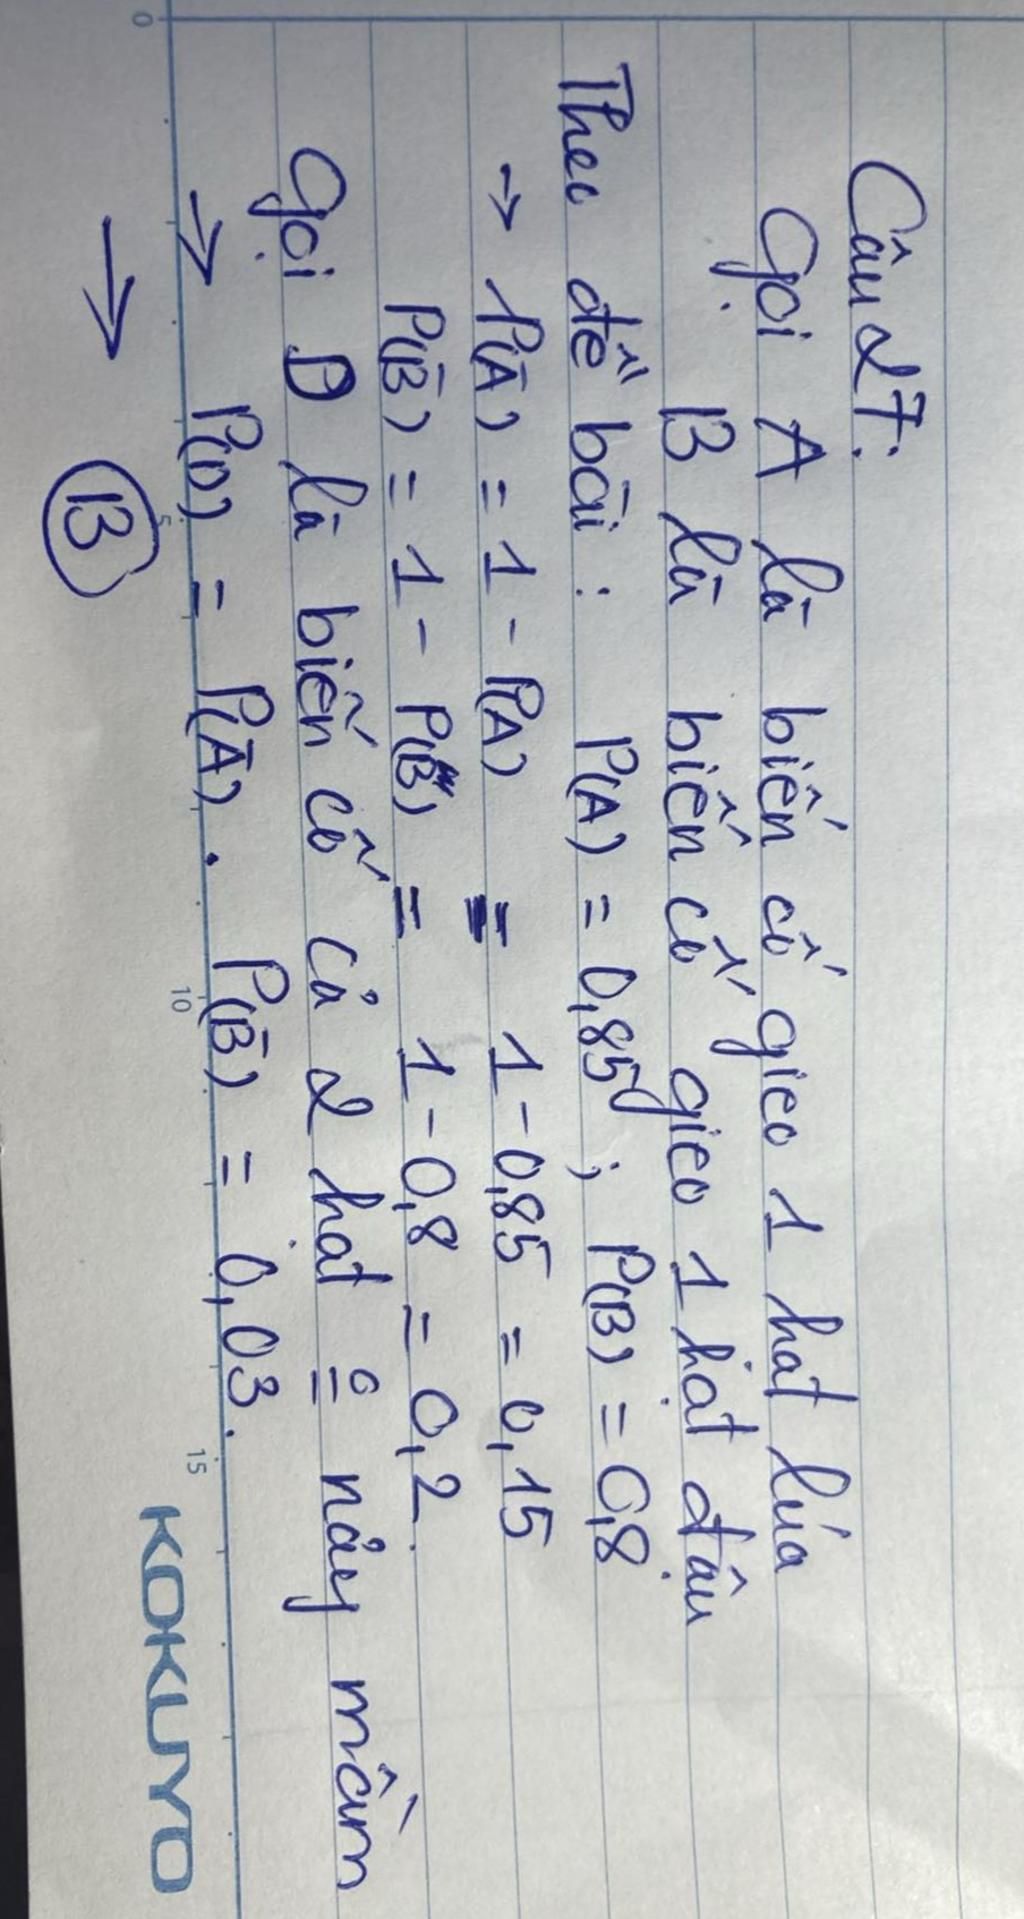 Câu 27:
Gọi A là biến cố gieo 1 hạt lúa
B là biến cố gieo 1 hạt đậu
Theo đề bài: P(A) = 0,85; P(B) = 0,8
→ P(Ā) = 1 - P(A) = 1 - 0,85 = 0,15
P(B̄) = 1 - P(B) = 1 - 0,8 = 0,2.
Gọi D là biến cố cả 2 hạt nảy mầm
→ P(D) = P(Ā). P(B̄) = 0,03.
→ B
0 5 10 15
KOKUYO